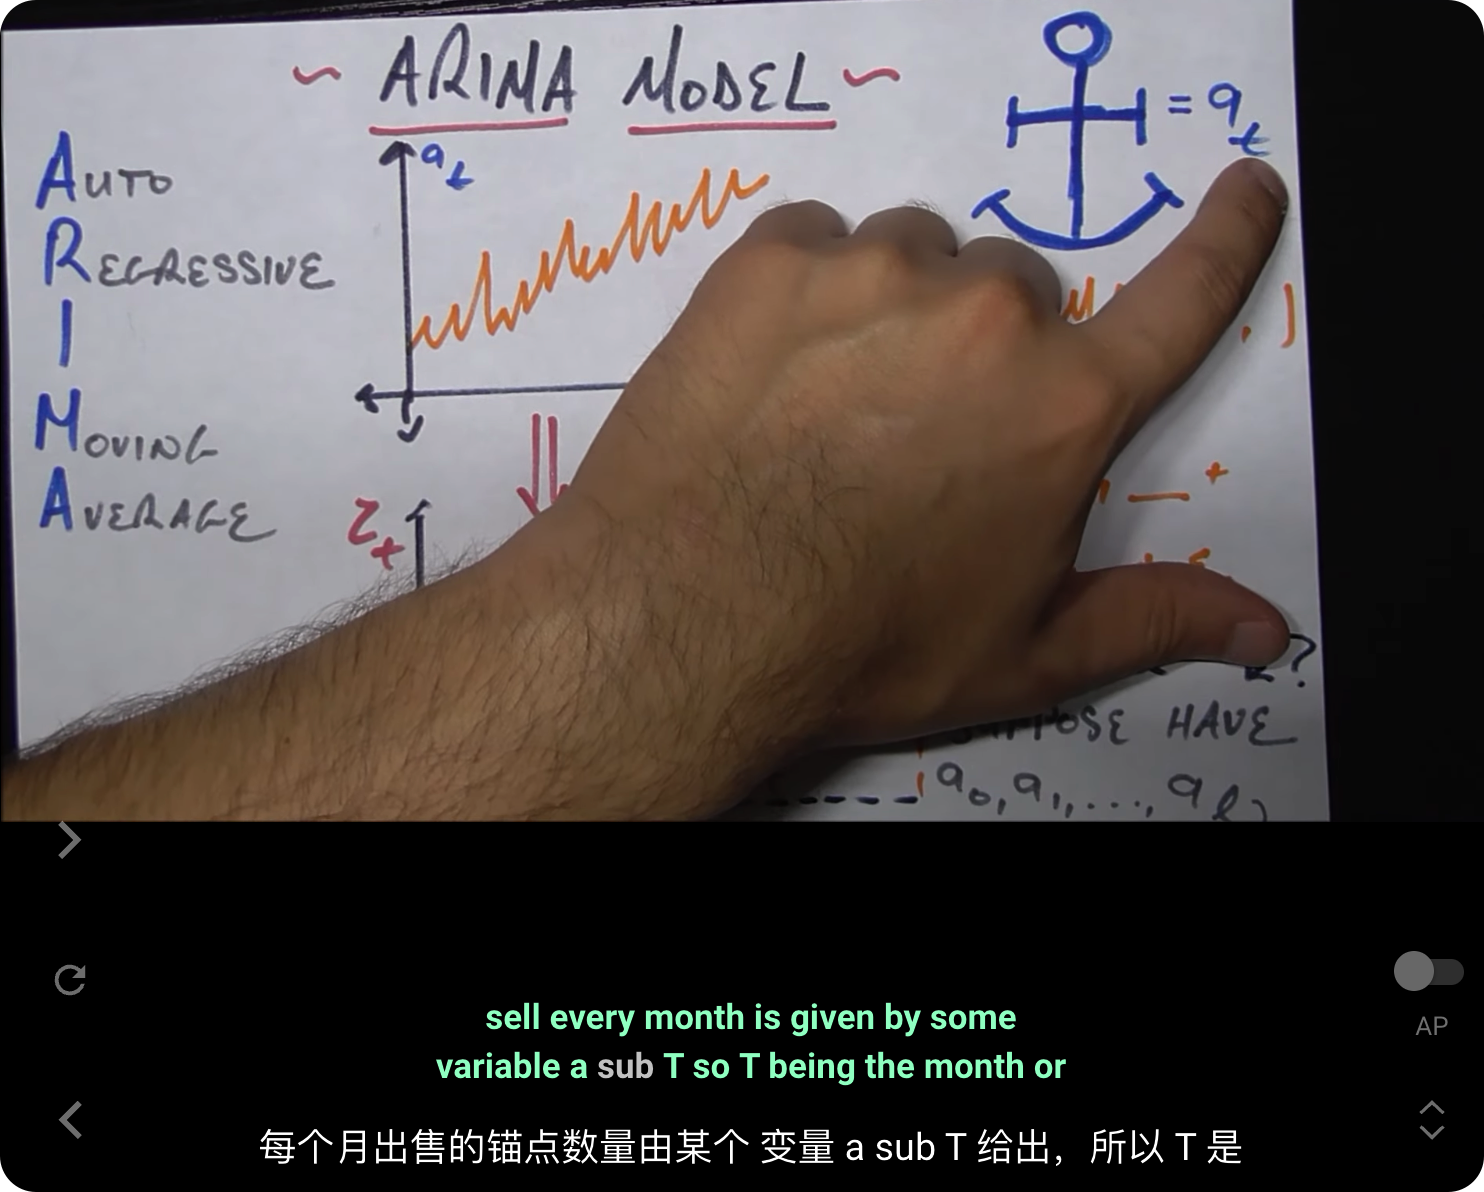 ~ ARIMA MODEL ~
AUTO
REGRESSIVE
I
MOVING
AVERAGE
a_t
= a_t
Z_t
?
HAVE
a_0, a_1, ...,
sell every month is given by some
variable a sub T so T being the month or
每个月出售的锚点数量由某个 变量 a sub T 给出，所以 T 是
AP